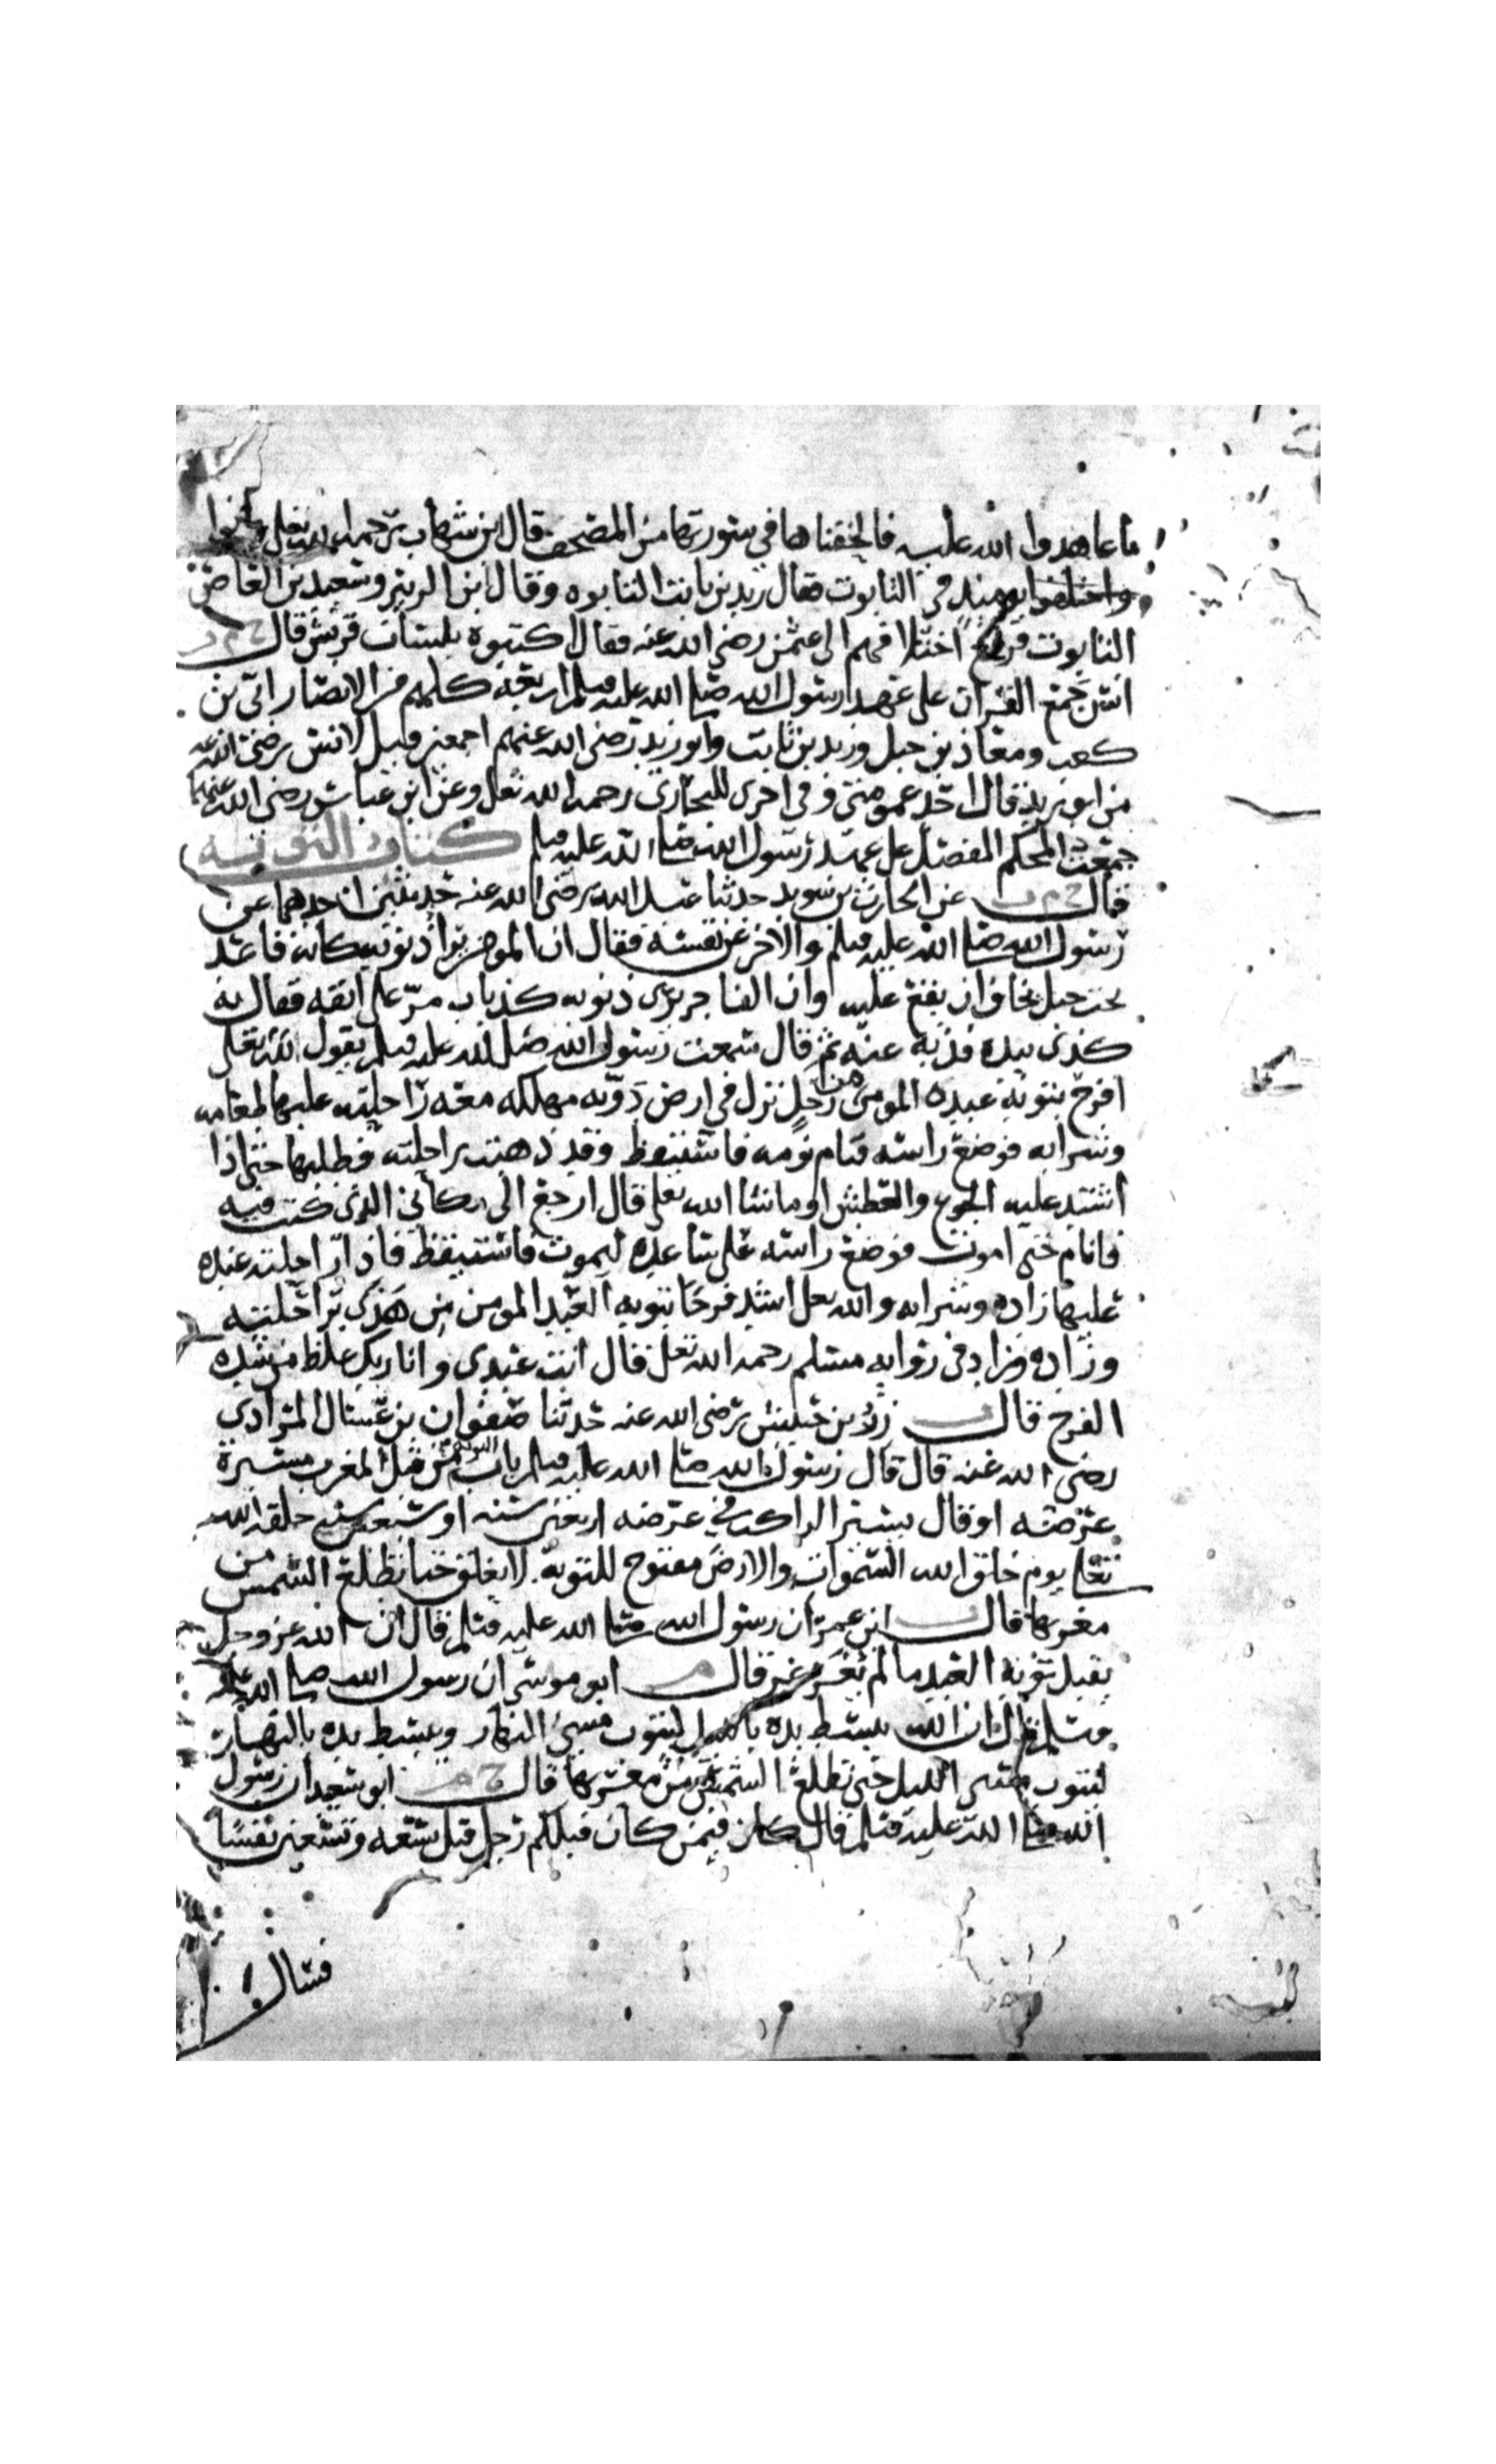 ما عاهدوا الله عليه فالحقناها في سورتها من المصحف قال ابن شهاب رحمه الله تعلى
واختلفوا يومئذ في التابوت فقال زيد بن ثابت التابوه وقال ابن الزبير وسعيد بن العاص
التابوت فرفع اختلافهم الى عثمن رضي الله عنه فقال اكتبوه بلسان قريش قال خ م ت
انس جمع القران على عهد رسول الله صلى الله عليه وسلم اربعة كلهم من الانصار ابي بن
كعب ومعاذ بن جبل وزيد بن ثابت وابو زيد رضي الله عنهم اجمعين وقيل لانس رضي الله عنه
من ابو زيد قال احد عمومتي وفي اخرى للبخاري رحمه الله تعلى وعن ابن عباس رضي الله عنهما
جمعت المحكم المفصل على عهد رسول الله صلى الله عليه وسلم كتاب التوبة
قال خ م ت عن الحارث بن سويد حدثنا عبد الله رضي الله عنه حديثين احدهما عن
رسول الله صلى الله عليه وسلم والاخر عن نفسه فقال ان المومن يرا ذنوبه كانه قاعد
تحت جبل يخاف ان يقع عليه وان الفاجر يرى ذنوبه كذباب مر على انفه فقال به
كذى بيده فذبه عنه ثم قال سمعت رسول الله صلى الله عليه وسلم يقول لله تعلى
افرح بتوبة عبده المومن من رجل نزل في ارض دوية مهلكه معه راحلته عليها طعامه
وشرابه فوضع راسه فنام نومه فاستيقظ وقد ذهبت راحلته فطلبها حتى اذا
اشتد عليه الجوع والعطش او ما شا الله تعلى قال ارجع الى مكاني الذي كنت فيه
فانام حتى اموت فوضع راسه على ساعده ليموت فاستيقظ فاذا راحلته عنده
عليها زاده وشرابه والله تعلى اشد فرحا بتوبة العبد المومن من هذى براحلته
وزاده وزاد في رواية مسلم رحمه الله تعلى قال انت عبدي وانا ربك غلط من شدة
الفرح قال ت زر بن حبيش رضي الله عنه حدثنا صفوان بن عسال المرادي
رضي الله عنه قال قال رسول الله صلى الله عليه وسلم باب التوبة من قبل المغرب مسيرة
عرضه او قال يسير الراكب في عرضه اربعين سنه او سبعين سنة خلقه الله
تعلى يوم خلق الله السموات والارض مفتوح للتوبة لا يغلق حتى تطلع الشمس من
مغربها قال ت ابن عمر ان رسول الله صلى الله عليه وسلم قال ان الله عز وجل
يقبل توبة العبد ما لم يغرغر قال م ابو موسى ان رسول الله صلى الله عليه
وسلم قال ان الله يبسط يده بالليل ليتوب مسئ النهار ويبسط يده بالنهار
ليتوب مسئ الليل حتى تطلع الشمس من مغربها قال خ م ابو سعيد ان رسول
الله صلى الله عليه وسلم قال كان فيمن كان قبلكم رجل قتل تسعه وتسعين نفسا
فسال